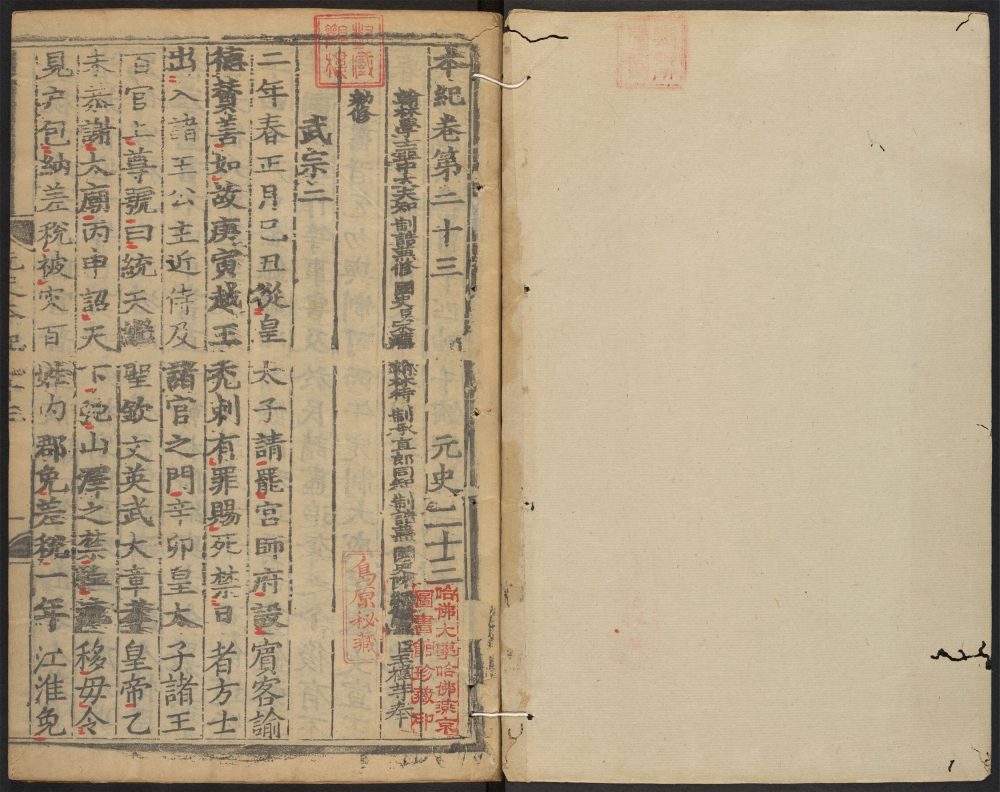 本紀卷第二十三 元史二十三
翰林學士亞中大夫知制誥兼修國史臣宋濂 翰林待制承直郎同知制誥兼國史院編修官臣王禕等奉
勑修
武宗二
二年春正月己丑從皇太子請罷宮師府設賓客諭
德贊善如故庚寅越王禿剌有罪賜死禁日者方士
出入諸王公主近侍及諸官之門辛卯皇太子諸王
百官上尊號曰統天繼聖欽文英武大章孝皇帝乙
未恭謝太廟丙申詔天下弛山澤之禁移毋令
見戶包納差稅被灾百姓內郡免差稅一年江淮免
哈佛大學哈佛燕京
圖書館珍藏印
島原秘藏